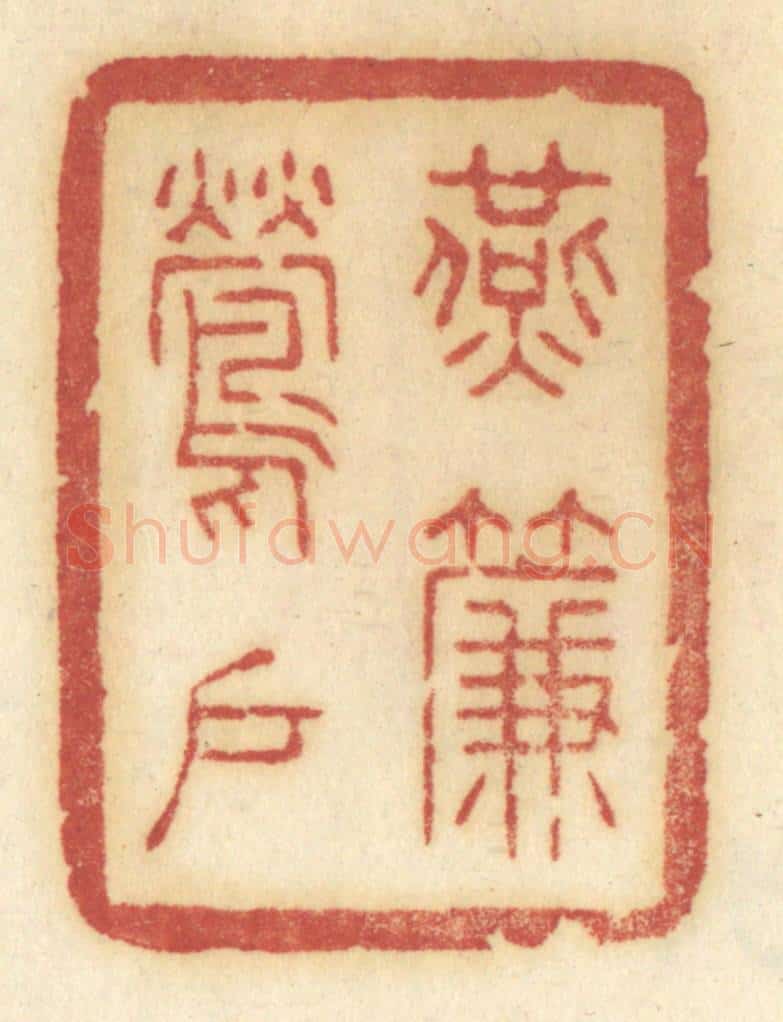 燕簾
鶯戶
Shufawang.CN